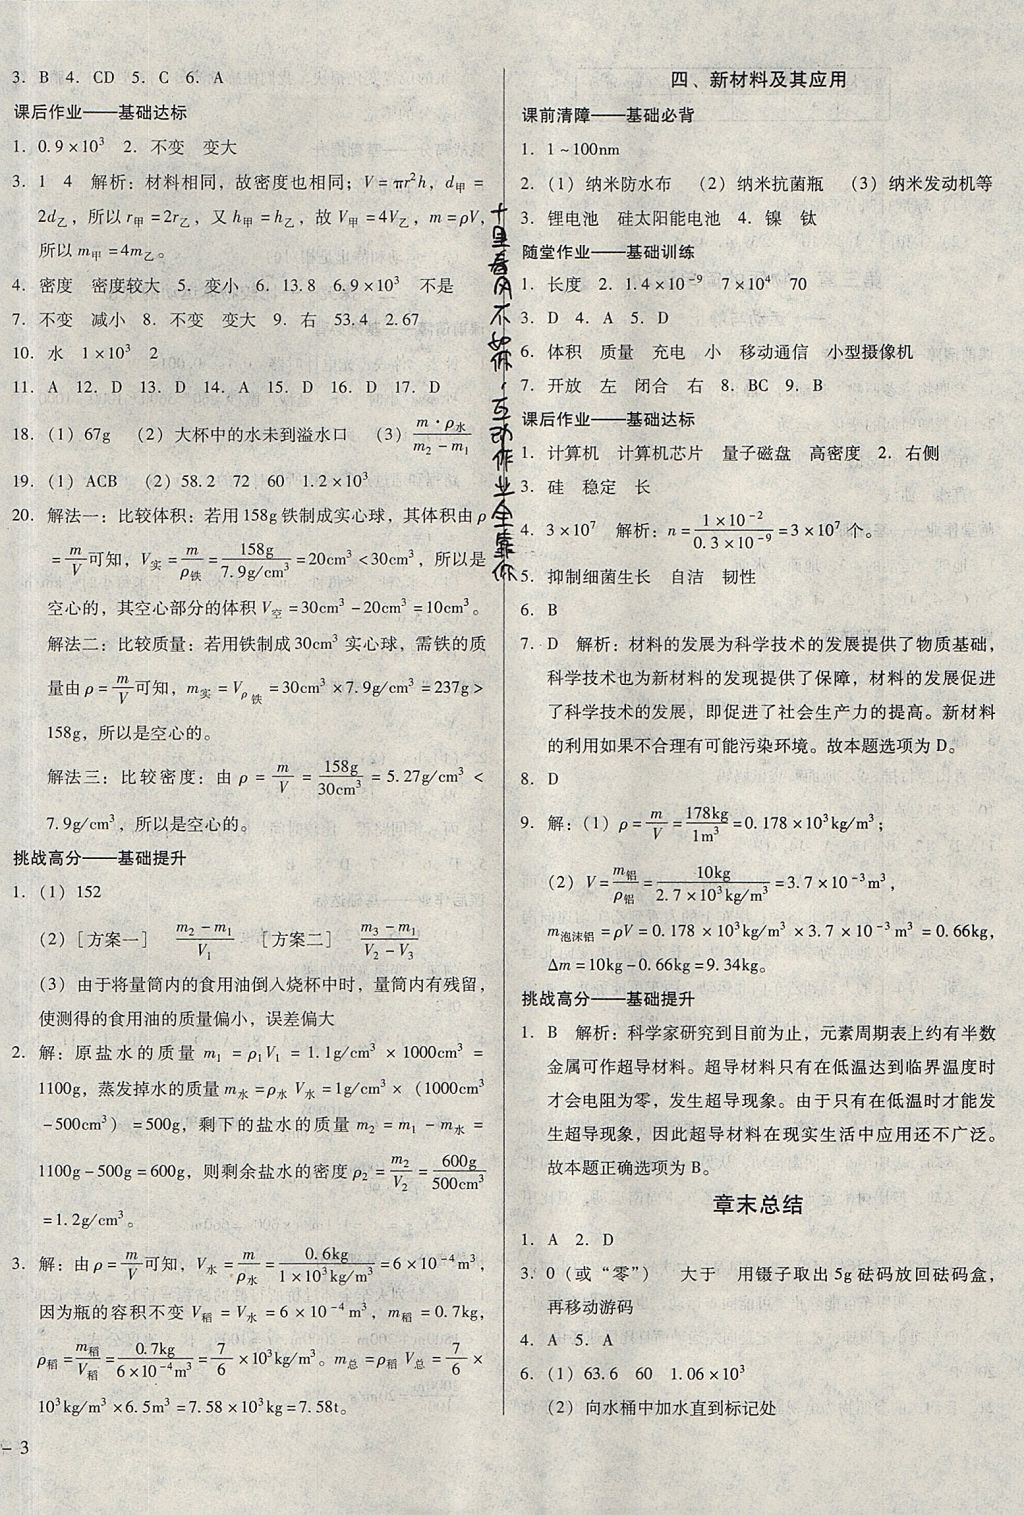 3. B 4. CD 5. C 6. A
课后作业——基础达标
1. 0.9×10³ 2. 不变 变大
3. 1 4 解析：材料相同，故密度也相同；V=πr²h，d甲=
2d乙，所以 r甲=2r乙，又 h甲=h乙，故 V甲=4V乙，m=ρV，
所以 m甲=4m乙。
4. 密度 密度较大 5. 变小 6. 13.8 6.9×10³ 不是
7. 不变 减小 8. 不变 变大 9. 右 53.4 2.67
10. 水 1×10³ 2
11. A 12. D 13. D 14. A 15. D 16. D 17. D
18. (1) 67g (2) 大杯中的水未到溢水口 (3) m·ρ水/(m₂-m₁)
19. (1) ACB (2) 58.2 72 60 1.2×10³
20. 解法一：比较体积：若用158g铁制成实心球，其体积由ρ
=m/V可知，V实=m/ρ铁=158g/7.9g/cm³=20cm³<30cm³，所以是
空心的，其空心部分的体积V空=30cm³-20cm³=10cm³。
解法二：比较质量：若用铁制成30cm³实心球，需铁的质
量由ρ=m/V可知，m实=Vρ铁=30cm³×7.9g/cm³=237g>
158g，所以是空心的。
解法三：比较密度：由ρ=m/V=158g/30cm³=5.27g/cm³<
7.9g/cm³，所以是空心的。
挑战高分——基础提升
1. (1) 152
(2)［方案一］ (m₂-m₁)/V₁ ［方案二］ (m₃-m₁)/(V₂-V₃)
(3) 由于将量筒内的食用油倒入烧杯中时，量筒内有残留，
使测得的食用油的质量偏小，误差偏大
2. 解：原盐水的质量 m₁=ρ₁V₁=1.1g/cm³×1000cm³=
1100g，蒸发掉水的质量m水=ρ水V水=1g/cm³×（1000cm³
-500cm³）=500g，剩下的盐水的质量m₂=m₁-m水=
1100g-500g=600g，则剩余盐水的密度ρ₂=m₂/V₂=600g/500cm³
=1.2g/cm³。
3. 解：由ρ=m/V可知，V水=m/ρ水=0.6kg/1×10³kg/m³=6×10⁻⁴m³，
因为瓶的容积不变V稻=V水=6×10⁻⁴m³，m稻=0.7kg，
ρ稻=m稻/V稻=0.7kg/6×10⁻⁴m³=7/6×10³kg/m³。m总=ρ稻V总=7/6×
10³kg/m³×6.5m³=7.58×10³kg=7.58t。
- 3
十里春风不如你，互动作业全靠你
四、新材料及其应用
课前清障——基础必背
1. 1~100nm
2. (1) 纳米防水布 (2) 纳米抗菌瓶 (3) 纳米发动机等
3. 锂电池 硅太阳能电池 4. 镍 钛
随堂作业——基础训练
1. 长度 2. 1.4×10⁻⁹ 7×10⁴ 70
3. D 4. A 5. D
6. 体积 质量 充电 小 移动通信 小型摄像机
7. 开放 左 闭合 右 8. BC 9. B
课后作业——基础达标
1. 计算机 计算机芯片 量子磁盘 高密度 2. 右侧
3. 硅 稳定 长
4. 3×10⁷ 解析：n=1×10⁻²/0.3×10⁻⁹=3×10⁷个。
5. 抑制细菌生长 自洁 韧性
6. B
7. D 解析：材料的发展为科学技术的发展提供了物质基础，
科学技术也为新材料的发现提供了保障，材料的发展促进
了科学技术的发展，即促进了社会生产力的提高。新材料
的利用如果不合理有可能污染环境。故本题选项为D。
8. D
9. 解：(1) ρ=m/V=178kg/1m³=0.178×10³kg/m³；
(2) V=m铝/ρ铝=10kg/2.7×10³kg/m³=3.7×10⁻³m³，
m泡沫铝=ρV=0.178×10³kg/m³×3.7×10⁻³m³=0.66kg，
Δm=10kg-0.66kg=9.34kg。
挑战高分——基础提升
1. B 解析：科学家研究到目前为止，元素周期表上约有半数
金属可作超导材料。超导材料只有在低温达到临界温度时
才会电阻为零，发生超导现象。由于只有在低温时才能发
生超导现象，因此超导材料在现实生活中应用还不广泛。
故本题正确选项为B。
章末总结
1. A 2. D
3. 0（或“零”） 大于 用镊子取出5g砝码放回砝码盒，
再移动游码
4. A 5. A
6. (1) 63.6 60 1.06×10³
(2) 向水桶中加水直到标记处